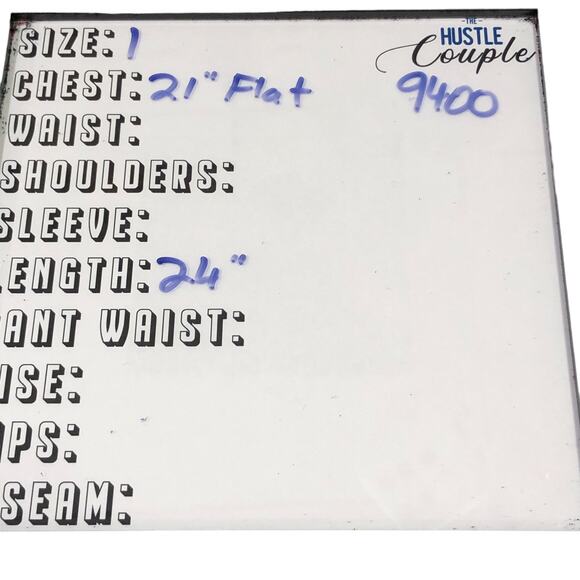 -THE-
HUSTLE
Couple
SIZE: 1
CHEST: 21" Flat 9400
WAIST:
SHOULDERS:
SLEEVE:
LENGTH: 24"
ANT WAIST:
ISE:
IPS:
SEAM: